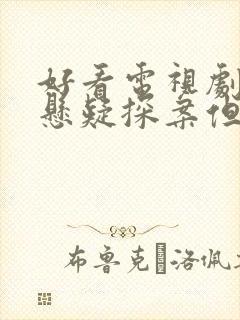 好看電視劇
懸疑探案但
布鲁克 洛佩